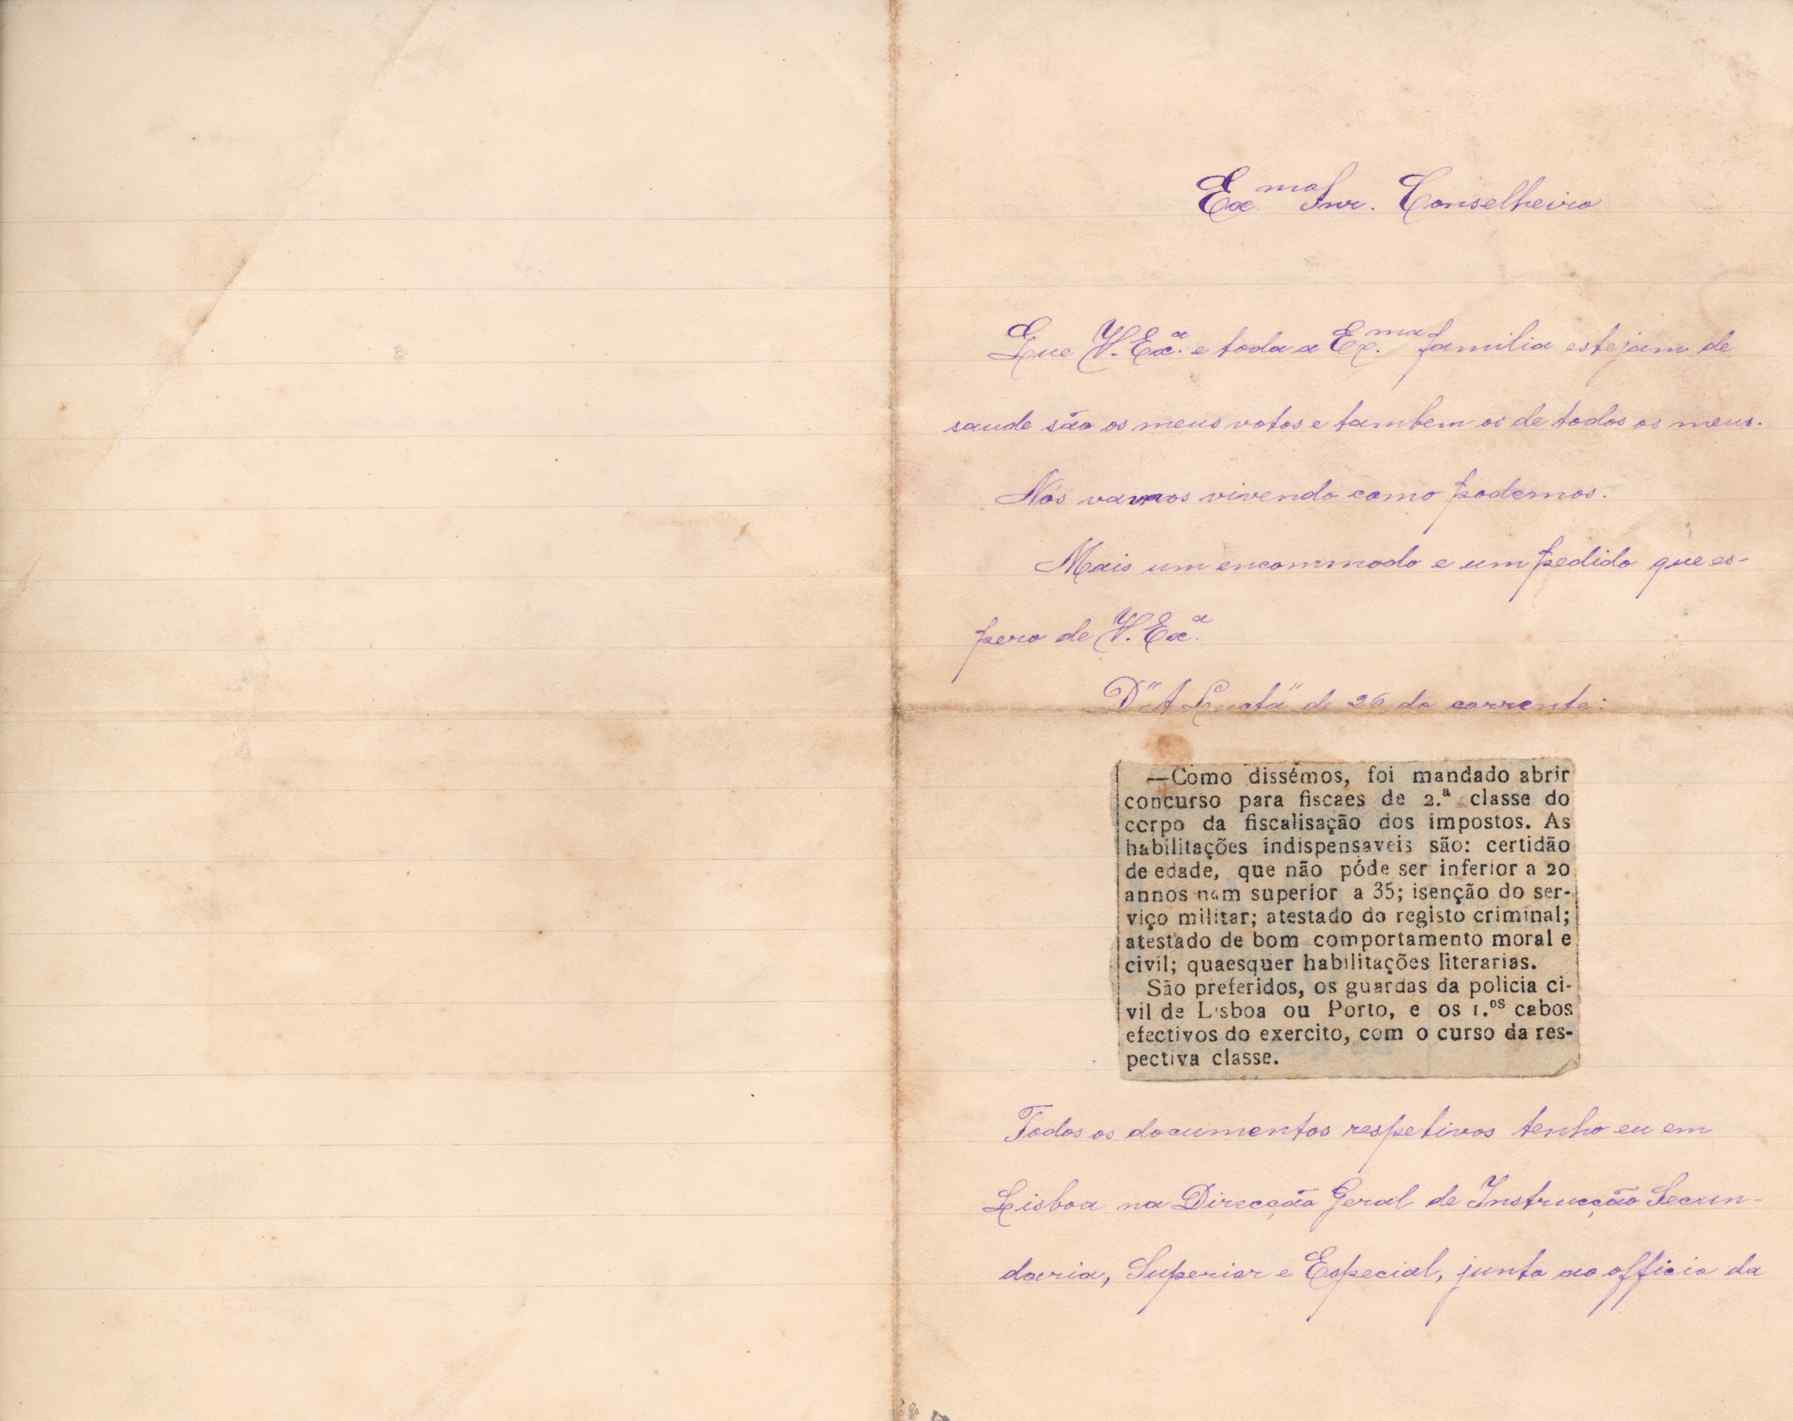 Ex.mo Snr. Conselheiro
Que V. Ex.a e toda a Ex.ma familia estejam de
saude são os meus votos e tambem os de todos os meus.
Nós vamos vivendo como podemos.
Mais um encommodo e um pedido que es-
pero de V. Ex.a
D"A Lucta" de 26 do corrente:
—Como dissémos, foi mandado abrir
concurso para fiscaes de 2.ª classe do
corpo da fiscalisação dos impostos. As
habilitações indispensaveis são: certidão
de edade, que não póde ser inferior a 20
annos nem superior a 35; isenção do ser-
viço militar; atestado do registo criminal;
atestado de bom comportamento moral e
civil; quaesquer habilitações literarias.
São preferidos, os guardas da policia ci-
vil de Lisboa ou Porto, e os 1.os cabos
efectivos do exercito, com o curso da res-
pectiva classe.
Todos os documentos respetivos tenho eu em
Lisboa na Direcção Geral de Instrucção Secun-
daria, Superior e Especial, junto ao officio da